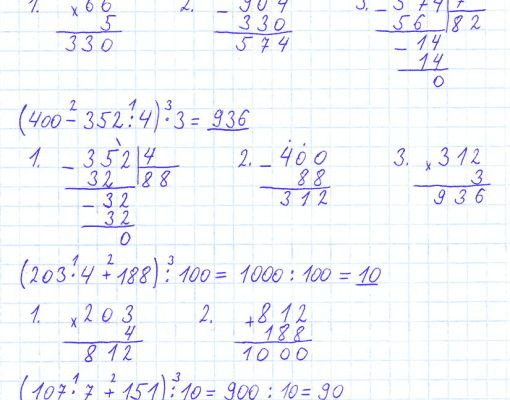 1. × 66 2. − 904 3. − 574 | 7
5 330 56 82
330 574 − 14
14
0
(400 −² 352 :¹ 4) ·³ 3 = 936
1. − 352 | 4 2. − 400 3. × 312
32 88 88 3
− 32 312 936
32
0
(203 ·¹ 4 +² 188) :³ 100 = 1000 : 100 = 10
1. × 203 2. + 812
4 188
812 1000
(107 ·¹ 7 +² 151) :³ 10 = 900 : 10 = 90